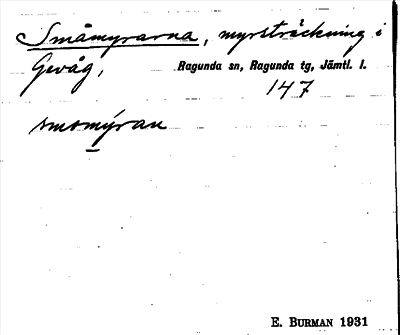 Småmyrarna, myrsträckning i
Gevåg, Ragunda sn, Ragunda tg, Jämtl. l.
147
smomýran
E. BURMAN 1931